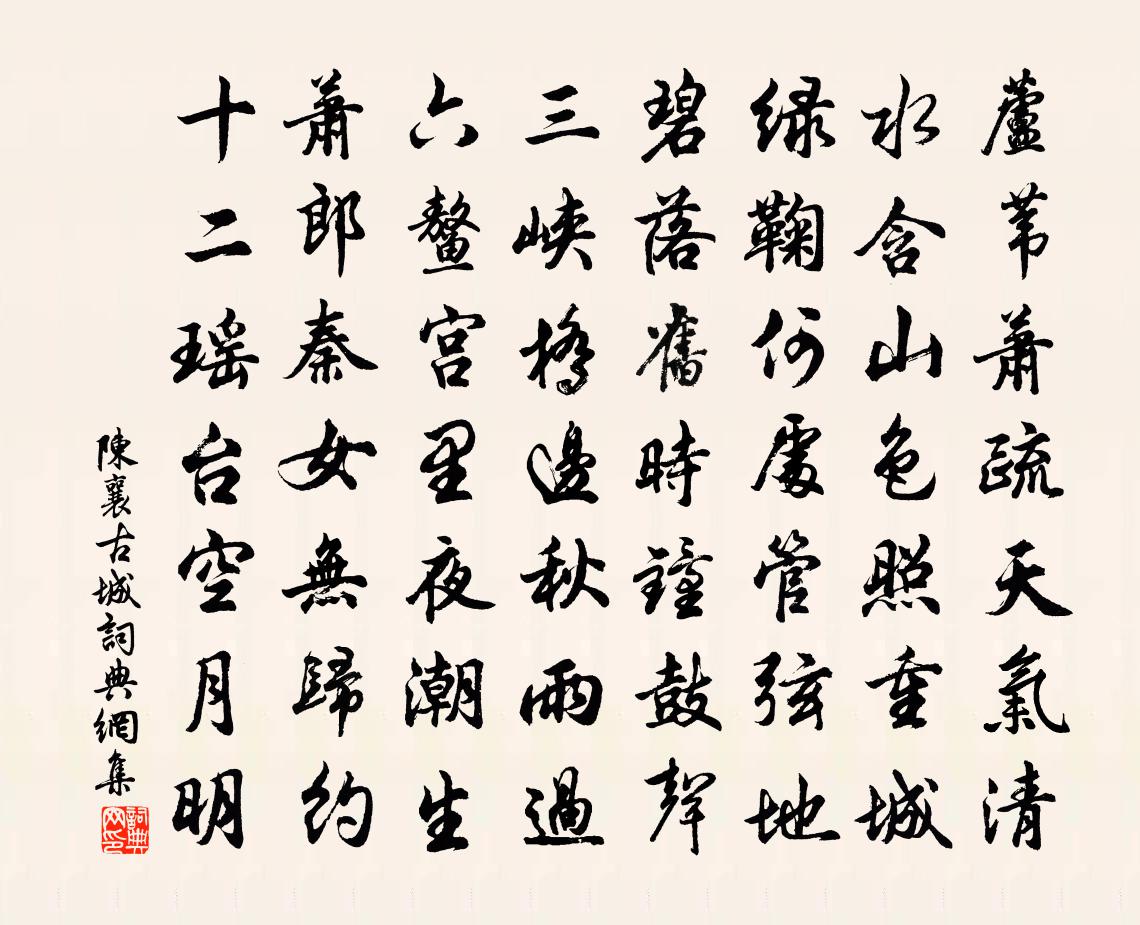 蘆苇蕭疏天氣清
水含山色照重城
緑鞠何處管弦地
碧落舊時鐘鼓聲
三峡橋邊秋雨過
六鳌宫里夜潮生
蕭郎秦女無歸約
十二瑶台空月明
陳襄古城詞典網集
詞典网印